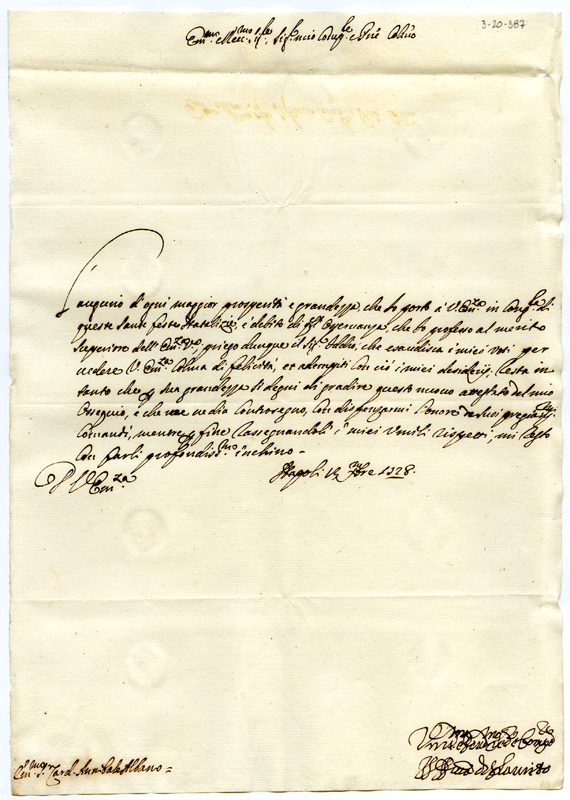 3-20-387
Em.mo e Rev.mo Sig.re mio Sig.re e P'rone Col.mo
L'augurio di ogni maggior prosperità e grandezza, che Io porto à V. Em.za in cong.ra di
queste Sante feste Natalizie, è debito di q.ll'Osservanza, che Io professo al merito
Superiore dell'Em.za V.ra; priego dunque il Sig.re Iddio, che esaudisca i miei voti per
vedere V. Em.za Colma di felicità, et adempiti con ciò i miei desiderij. Resta in
tanto che sua grandezza si degni di gradire questo nuovo attestato del mio
Ossequio, e che me ne dia Contrasegno, con dispenzarmi l'onore de suoi pregiatis.mi
Comandi, mentre per fine rassegnandoli i miei Umili rispetti, mi resto
con farli profondiss.mo inchino.
D. V. Em.za
Napoli 1728.
Em.o Sig.r Card. Annibale Albano =